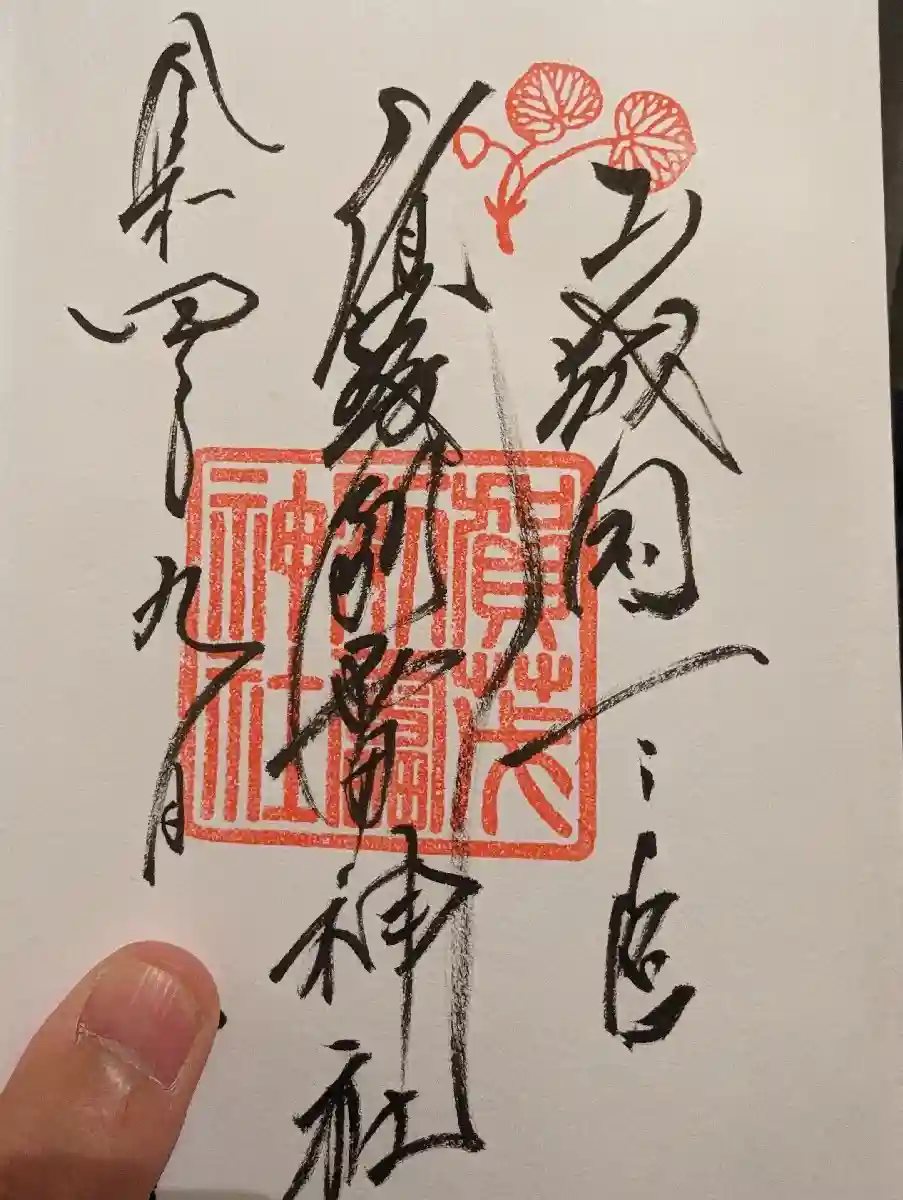 山城国一之宮
賀茂別雷神社
令和四年九月
賀茂
別雷
神社